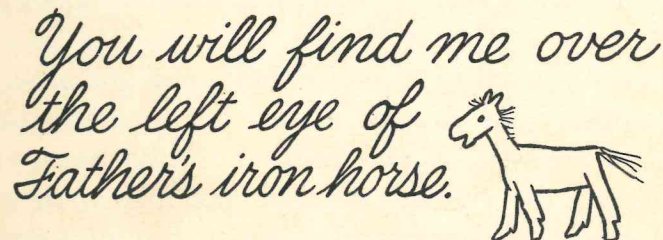 You will find me over
the left eye of
Father's iron horse.